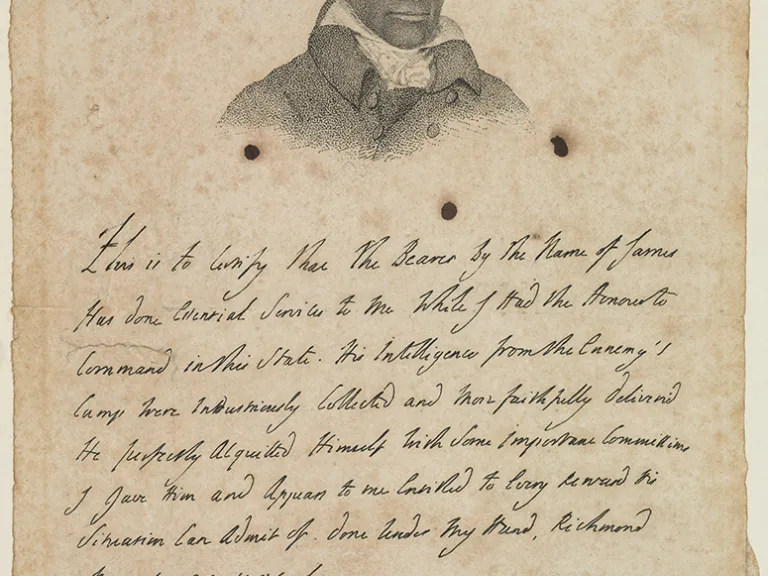 This is to Certify that the Bearer By the Name of James
Has done Essential Services to me While I Had the Honour to
Command in this State. His Intelligences from the Ennemy's
Camp were Industriously Collected and More faithfully deliver'd
He perfectly Acquitted Himself with Some Important Commissions
I Gave Him and Appears to me Entitled to Every Reward his
Situation Can Admit of. Done Under My Hand, Richmond